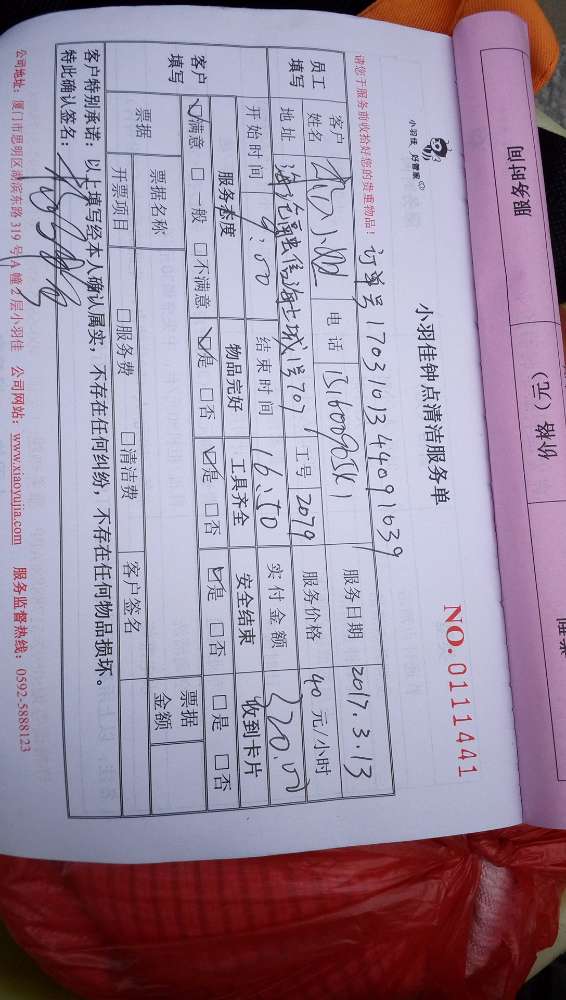 服务时间
价格（元）
小羽佳 好管家
小羽佳钟点清洁服务单
NO. 0111441
请您于服务前收拾好您的贵重物品！
订单号
员工填写
客户姓名
电话
服务日期 2017.3.13
地址
工号 2079
服务价格 40 元/小时
开始时间 9:00
结束时间 16:50
实付金额
客户填写
服务态度 物品完好 工具齐全 安全结束 收到卡片
☑满意 □一般 □不满意 ☑是 □否 ☑是 □否 ☑是 □否 □是 □否
票据
票据名称
票据金额
开票项目 □服务费 □清洁费 客户签名
客户特别承诺：以上填写经本人确认属实，不存在任何纠纷，不存在任何物品损坏。
特此确认签名：
公司地址：厦门市思明区湖滨东路319号A幢2层小羽佳 公司网站：www.xiaoyujia.com 服务监督热线：0592-5888123